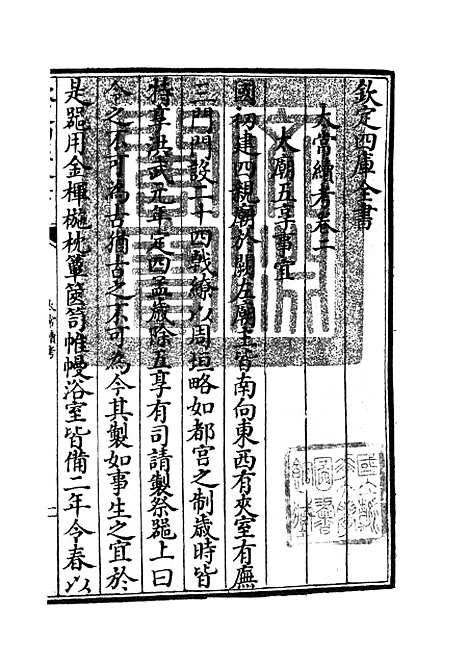 欽定四庫全書
太常續考卷二
太廟五享事宜
國初建四親廟於闕左廟主皆南向東西有夾室有廡
三門門設二十四戟繚以周垣略如都宫之制歲時皆
特享洪武元年定四孟歲除五享有司請製祭器上曰
今之不可為古猶古之不可為今其製如事生之宜於
是器用金楎椸枕簟篋笥帷幔浴室皆備二年今春以
太常續考